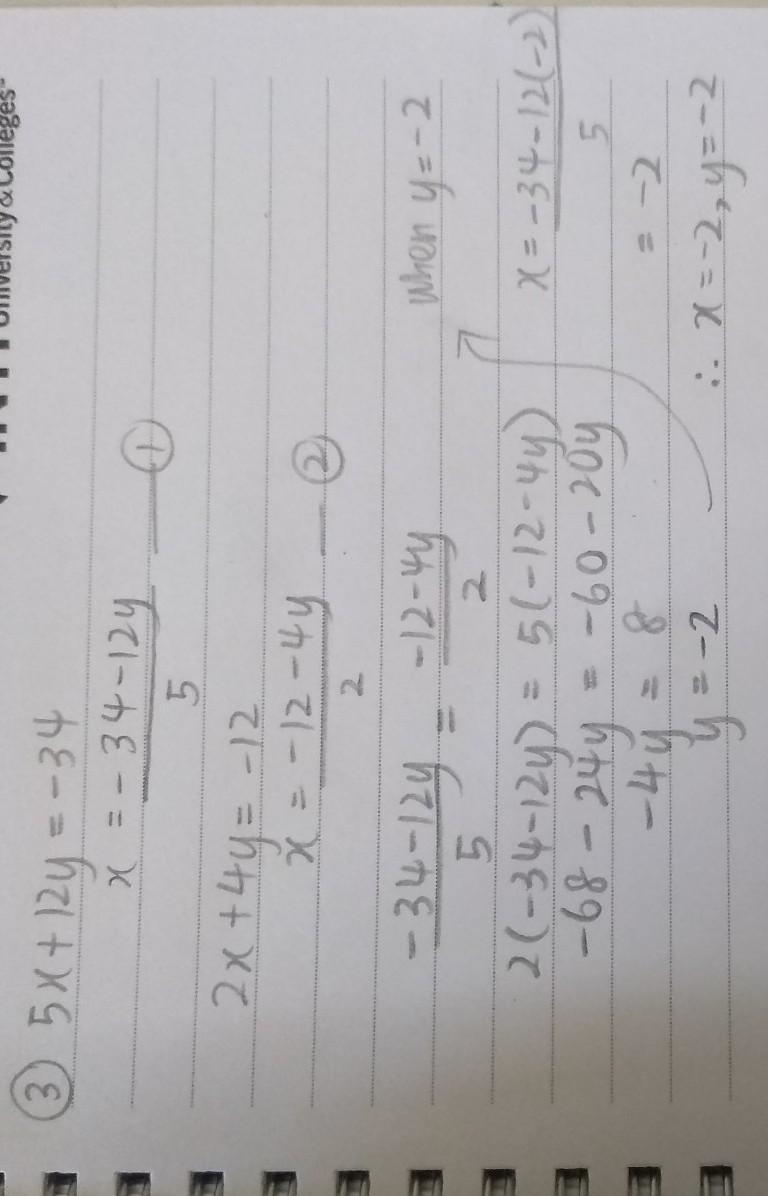 University & Colleges
③ 5x + 12y = -34
x = -34-12y —— ①
5
2x + 4y = -12
x = -12-4y —— ②
2
-34-12y = -12-4y
5 2
2(-34-12y) = 5(-12-4y)
-68 - 24y = -60 - 20y
-4y = 8
y = -2
when y = -2
x = -34-12(-2)
5
= -2
∴ x = -2, y = -2